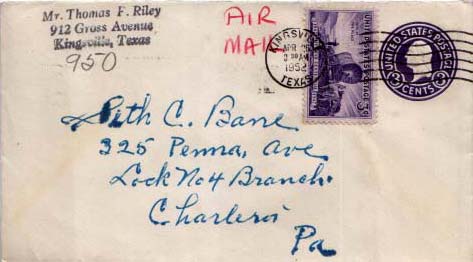 Mr. Thomas F. Riley
912 Gross Avenue
Kingsville, Texas
950
AIR
MAIL
KINGSVILLE
APR
1952
TEXAS
3¢
UNITED STATES POSTAGE
3 CENTS 3
C. Bane
325 Penna. Ave
Lock No 4 Branch.
Charleroi
Pa